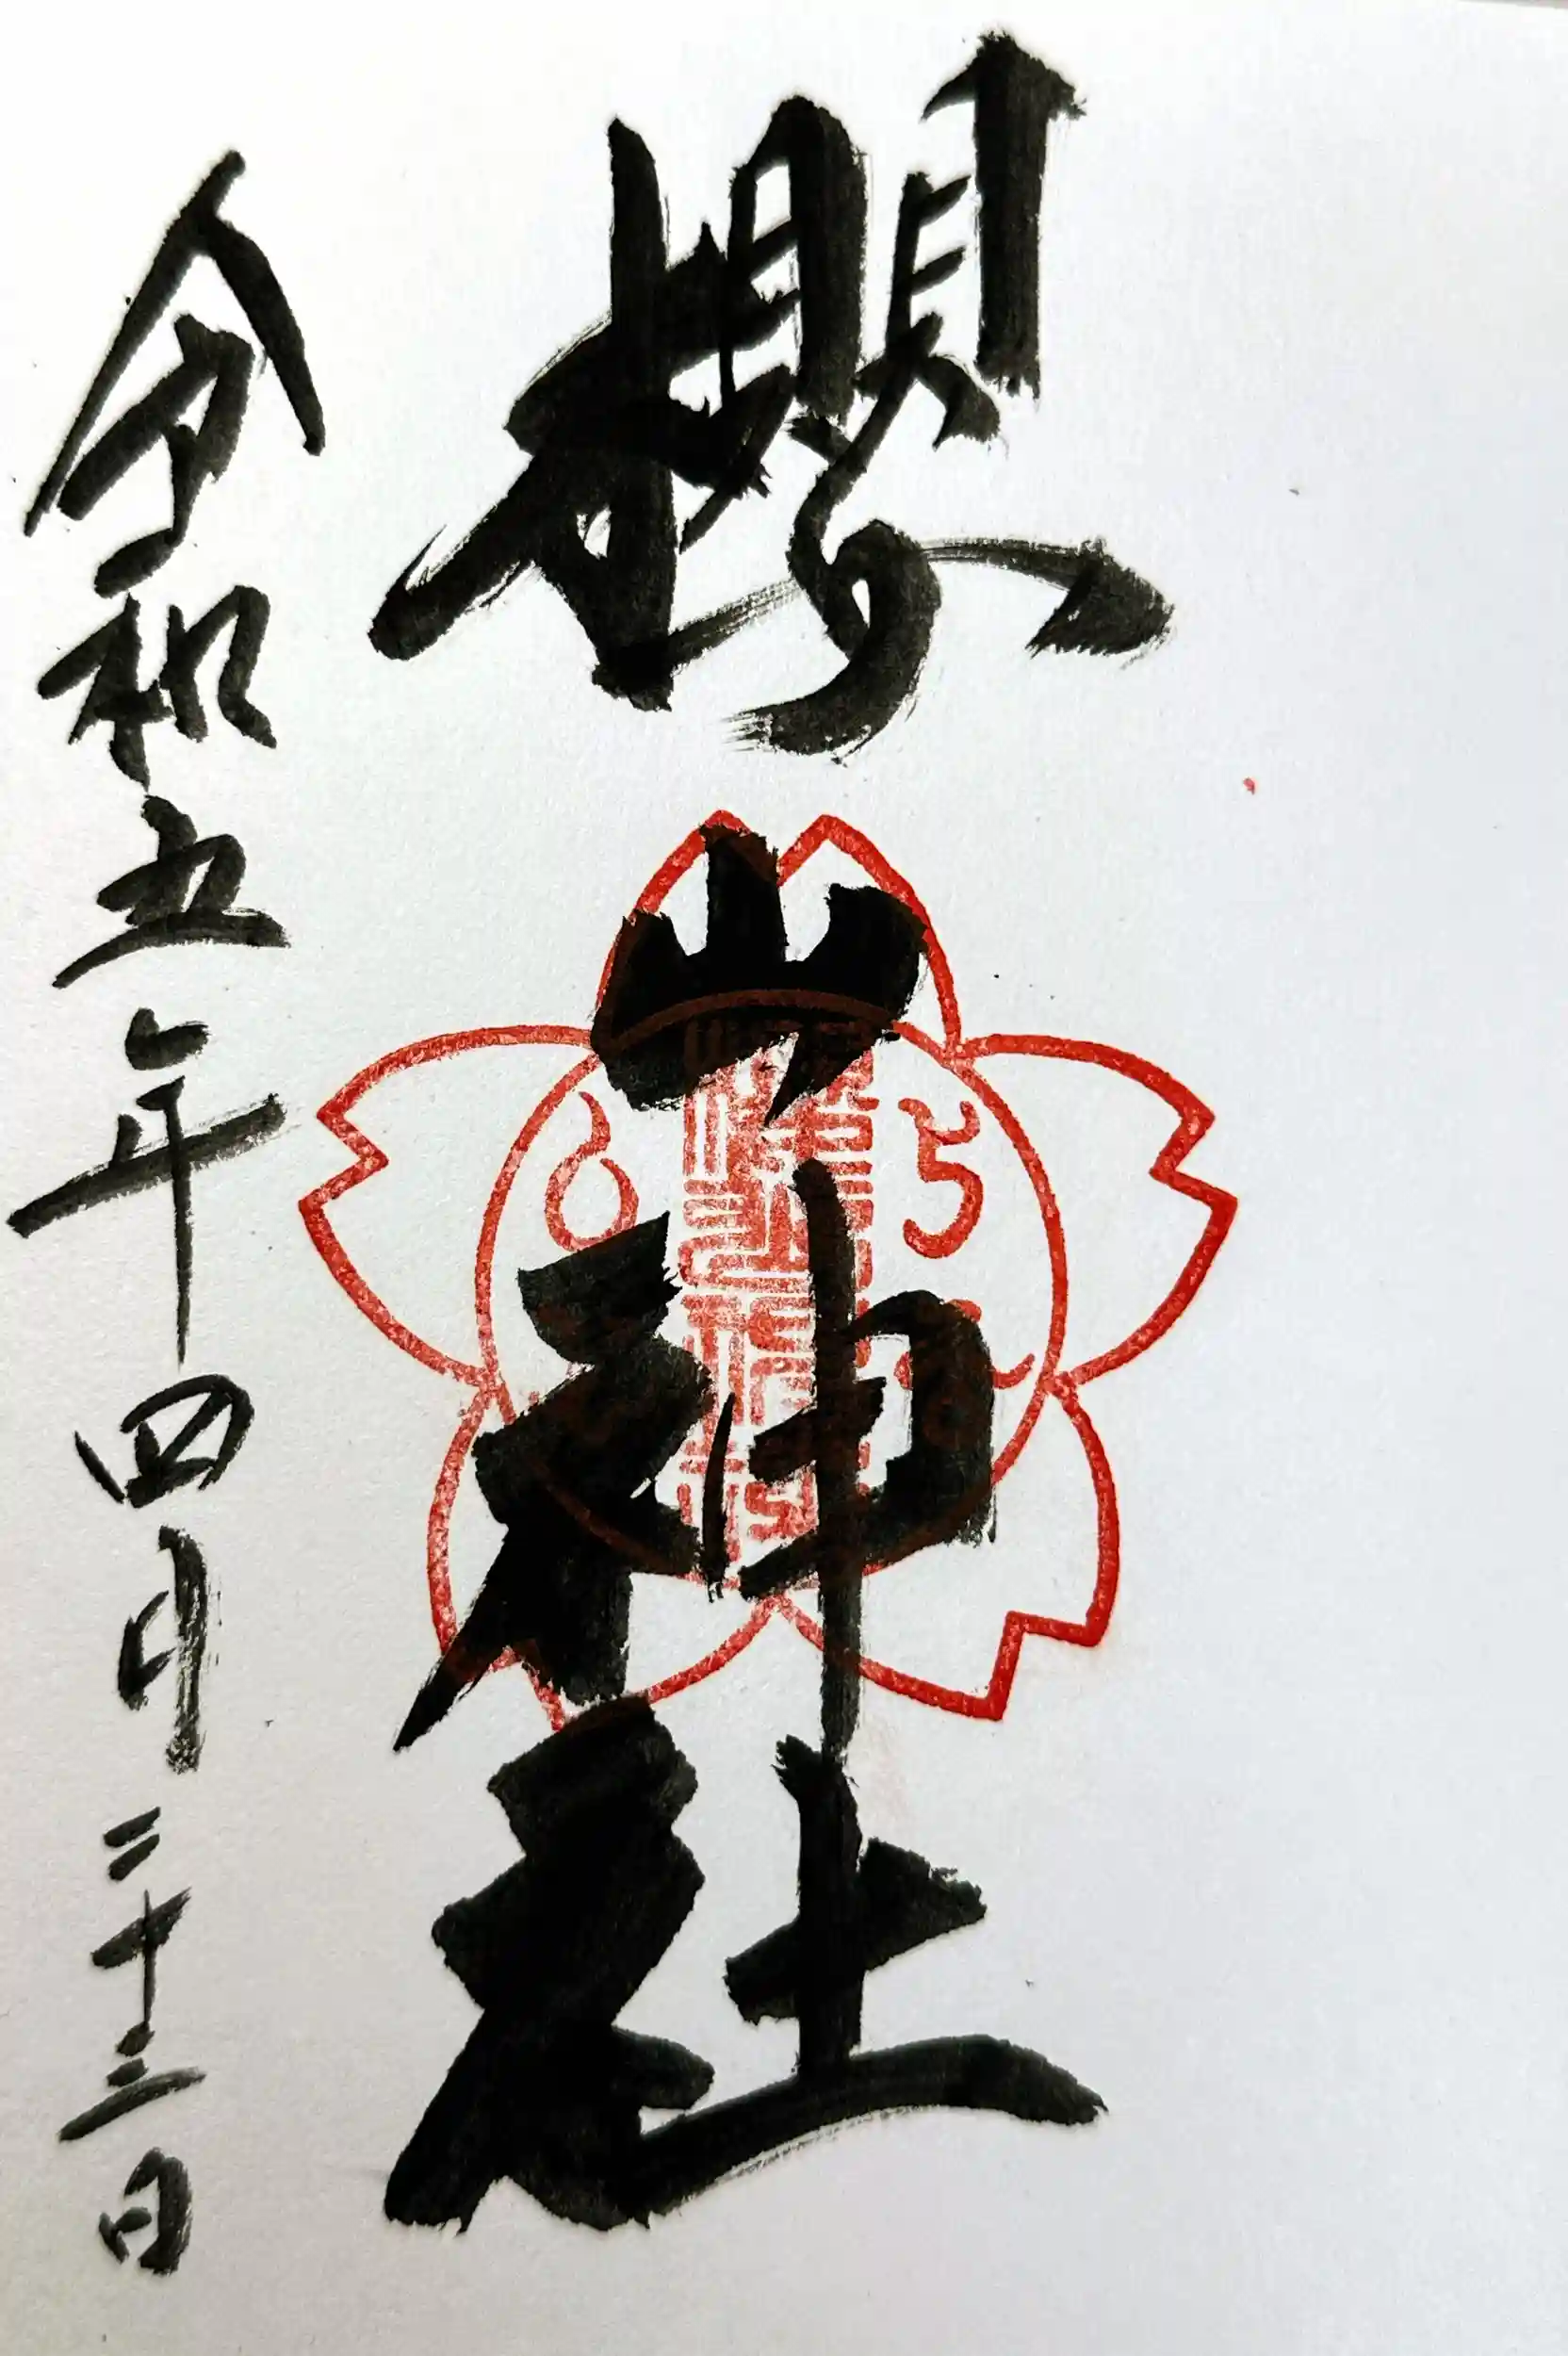 櫻山神社
令和五年四月二十三日